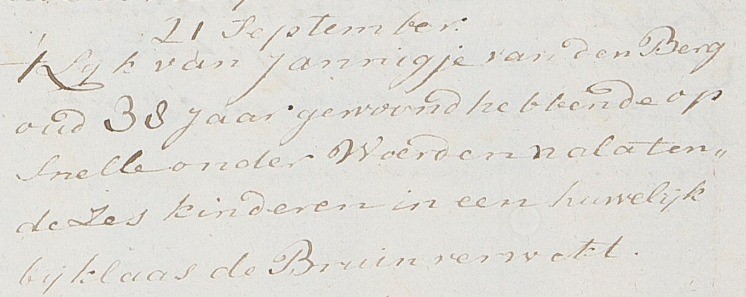 21 September.
Lijk van Jannigje van den Berg
oud 38 Jaar gewoond hebbende op
Snelle onder Woerden nalaten„
de Zes kinderen in een huwelijk
bij klaas de Bruin verwekt.